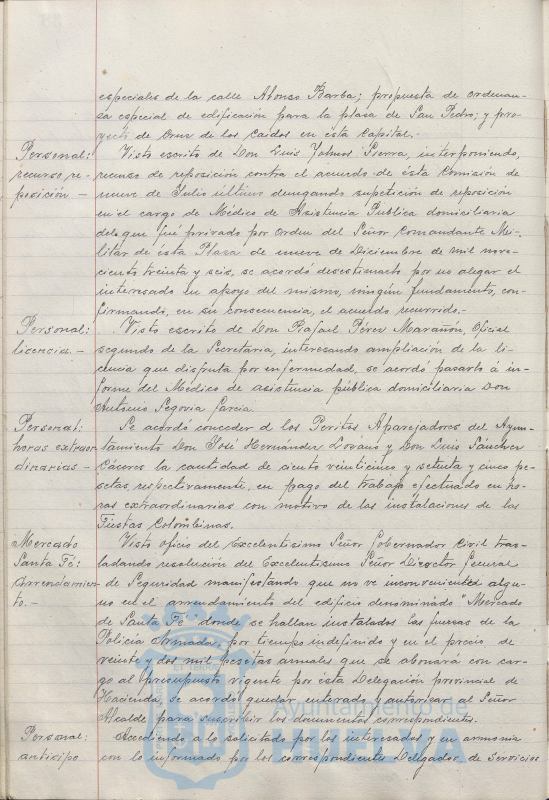 especiales de la calle Alonso Barba; propuesta de ordenan-
za especial de edificación para la plaza de San Pedro; y pro-
yecto de Cruz de los Caidos en ésta Capital.-
Personal:
recurso re-
posición -
Visto escrito de Don Luis Sierra, interponiendo,
recurso de reposición contra el acuerdo de ésta Comisión de
nueve de Julio último denegando supetición de reposición
en el cargo de Médico de Asistencia Pública domiciliaria
del que fué privado por orden del Señor Comandante Mi-
litar de ésta Plaza de nueve de Diciembre de mil nove-
ciento treinta y seis, se acordó desestimarlo por no alegar el
interesado en apoyo del mismo, ningún fundamento, con-
firmando, en su consecuencia, el acuerdo recurrido.-
Personal:
licencia.-
Visto escrito de Don Rafael Pérez Marañón, Oficial
segundo de la Secretaria, interesando ampliación de la li-
cencia que disfruta por enfermedad, se acordó pasarlo á in-
forme del Médico de asistencia pública domiciliaria Don
Antonio Segovia Garcia.
Personal:
horas extraor
dinarias -
Se acordó conceder á los Peritos Aparejadores del Ayun-
tamiento Don José Hernández Lozano y Don Luis Sánchez
Cáceres la cantidad de ciento veinticinco y setenta y cinco pe-
setas, respectivamente, en pago del trabajo efectuado en ho-
ras extraordinarias con motivo de las instalaciones de las
Fiestas Colombinas.
Mercado
Santa Fé:
arrendamien
to.-
Visto oficio del Excelentísimo Señor Gobernador Civil tras-
ladando resolución del Excelentísimo Señor Director General
de Seguridad manifestando que no ve inconveniente algu-
no en el arrendamiento del edificio denominado "Mercado
de Santa Fé" donde se hallan instalados las fuerzas de la
Policía Armada, por tiempo indefinido y en el precio de
veinte y dos mil pesetas anuales que se abonará con car-
go al presupuesto vigente por ésta Delegación provincial de
Hacienda, se acordó quedar enterado y autorizar al Señor
Alcalde para suscribir los documentos correspondientes.
Personal:
anticipo
Accediendo a lo solicitado por los interesados y en armonia
con lo informado por los correspondientes Delegados de Servicios
Ayuntamiento de
HUELVA